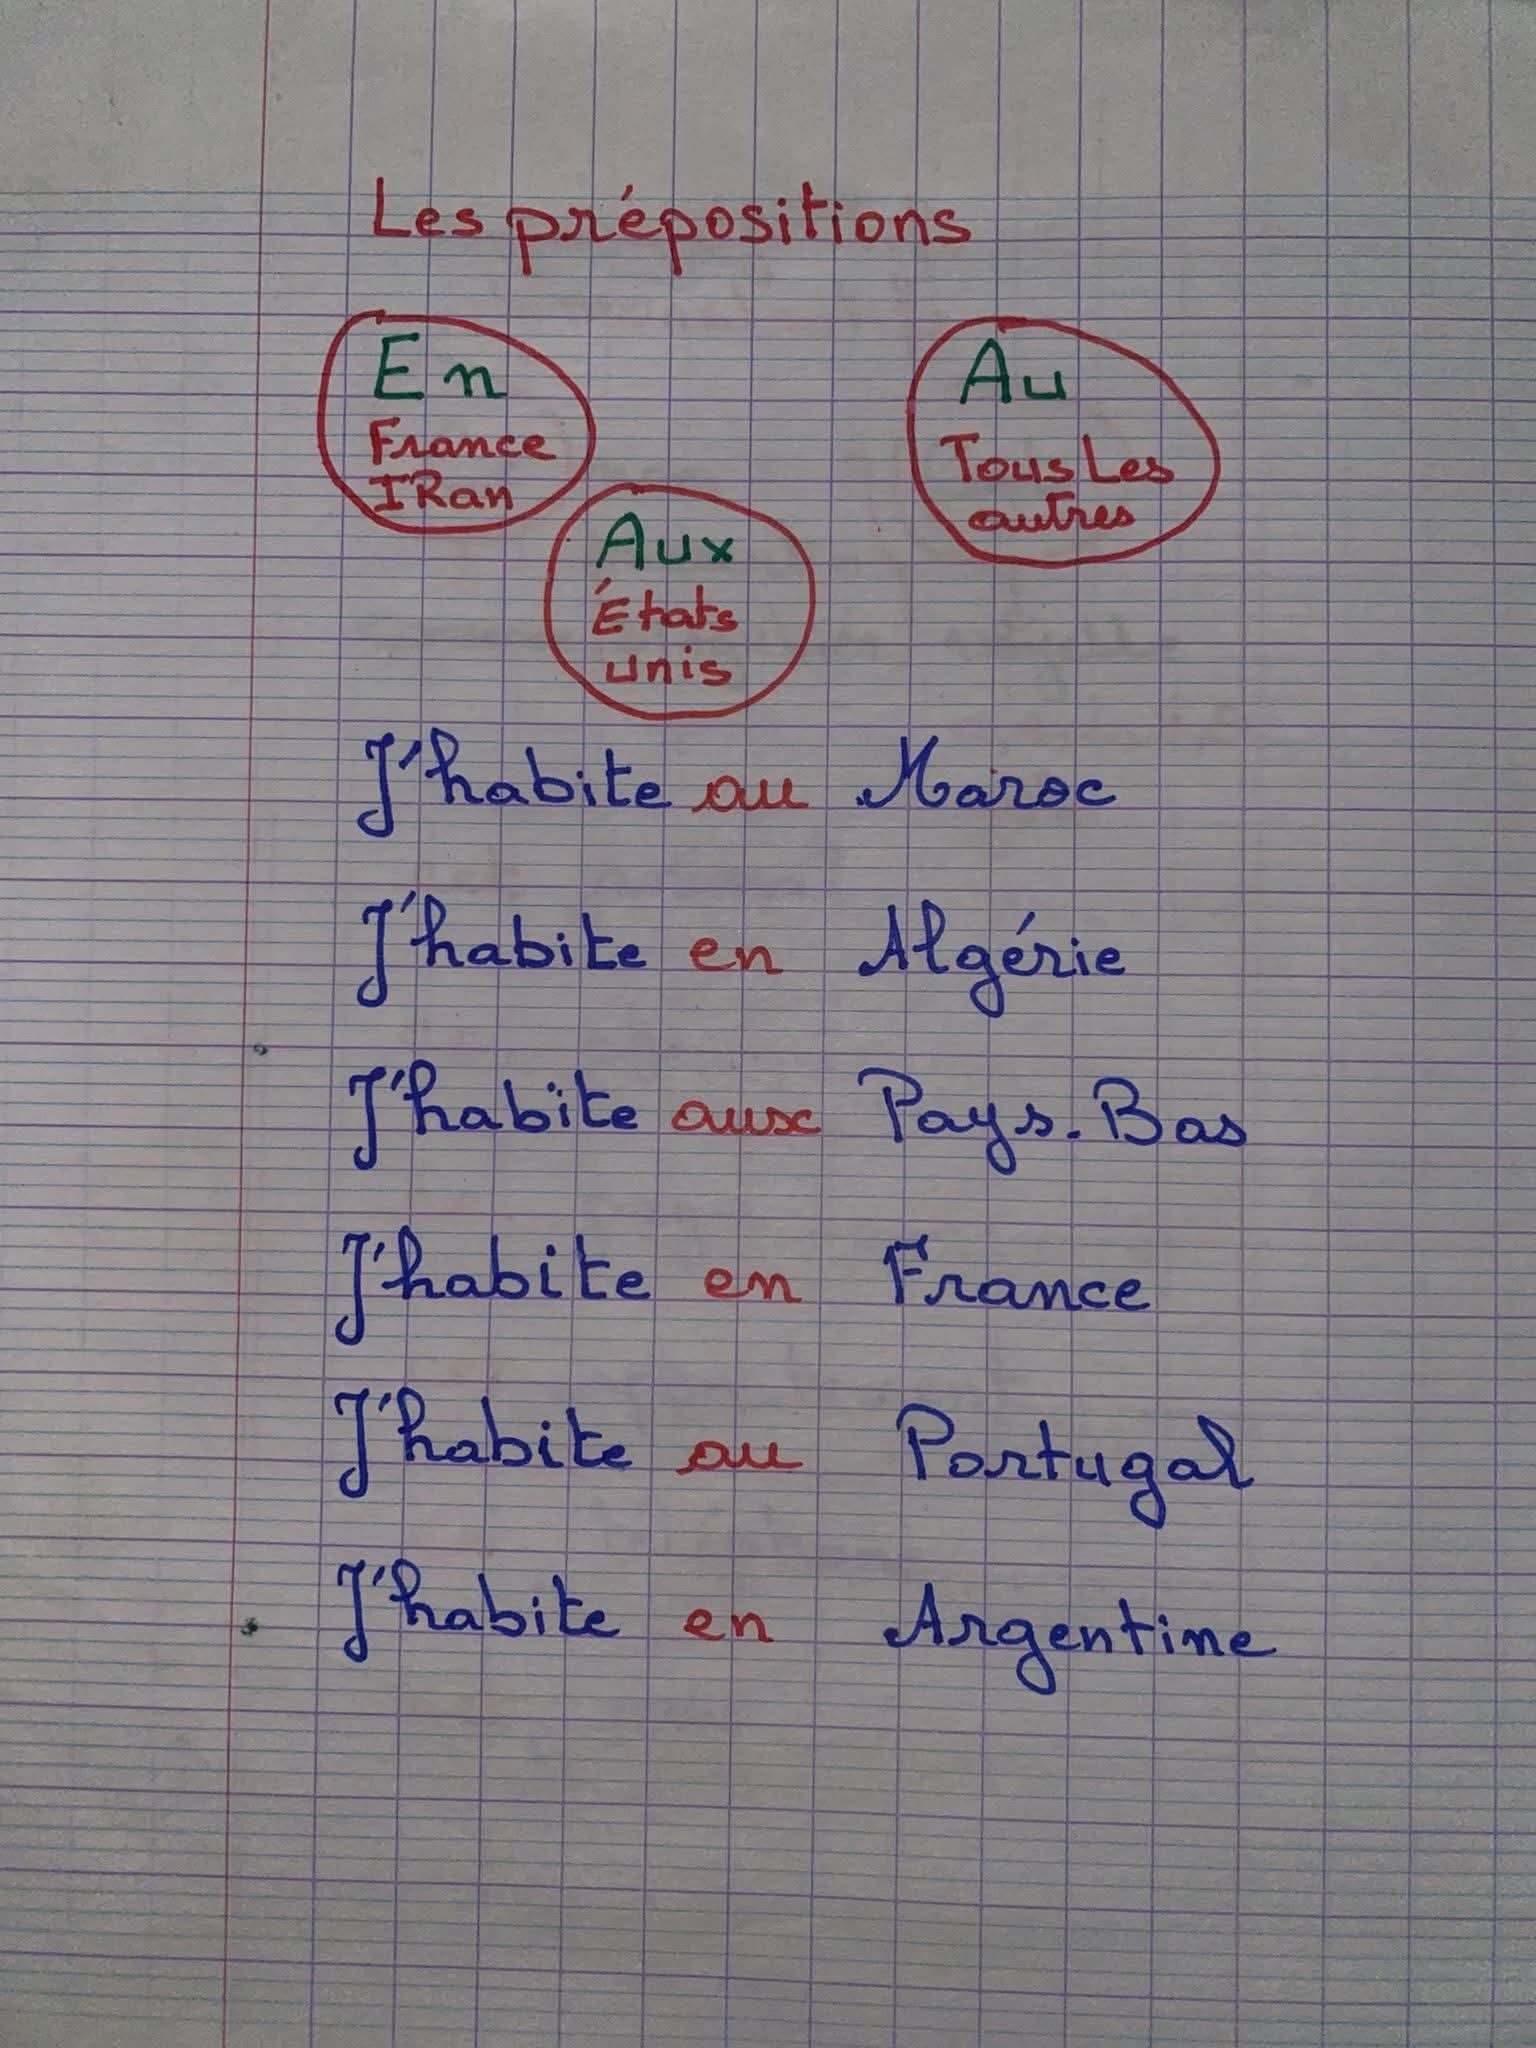 Les prépositions
En
France
IRan
Au
Tous Les
autres
Aux
États
unis
J'habite au Maroc
J'habite en Algérie
J'habite aux Pays-Bas
J'habite en France
J'habite au Portugal
J'habite en Argentine